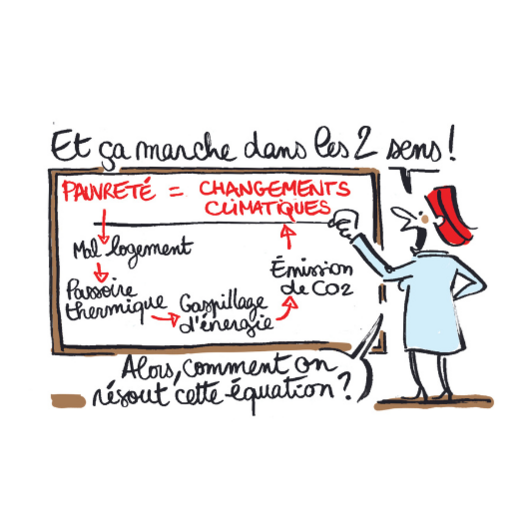 Et ça marche dans les 2 sens !
PAUVRETÉ = CHANGEMENTS
CLIMATIQUES
Mal logement
Passoire
thermique
Gaspillage
d'énergie
Émission
de CO2
Alors, comment on
résout cette équation ?